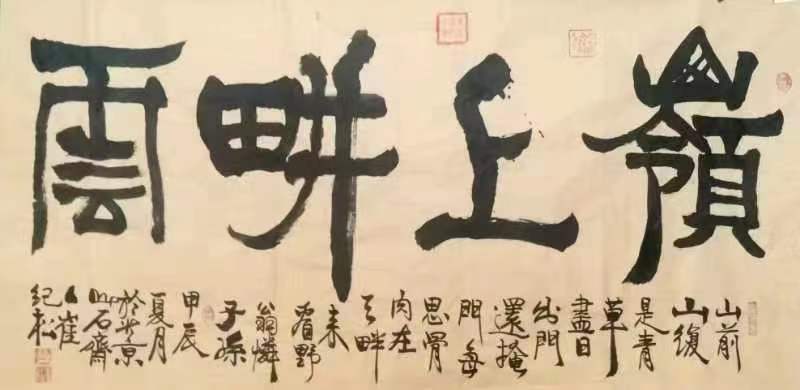 嶺上畊雲
山前
山復
是青
草
盡日
出門
還掩
門每
思骨
肉在
天畔
来
看野
翁憐
子孫
甲辰
夏月
於北京
石齋
崔
紀松